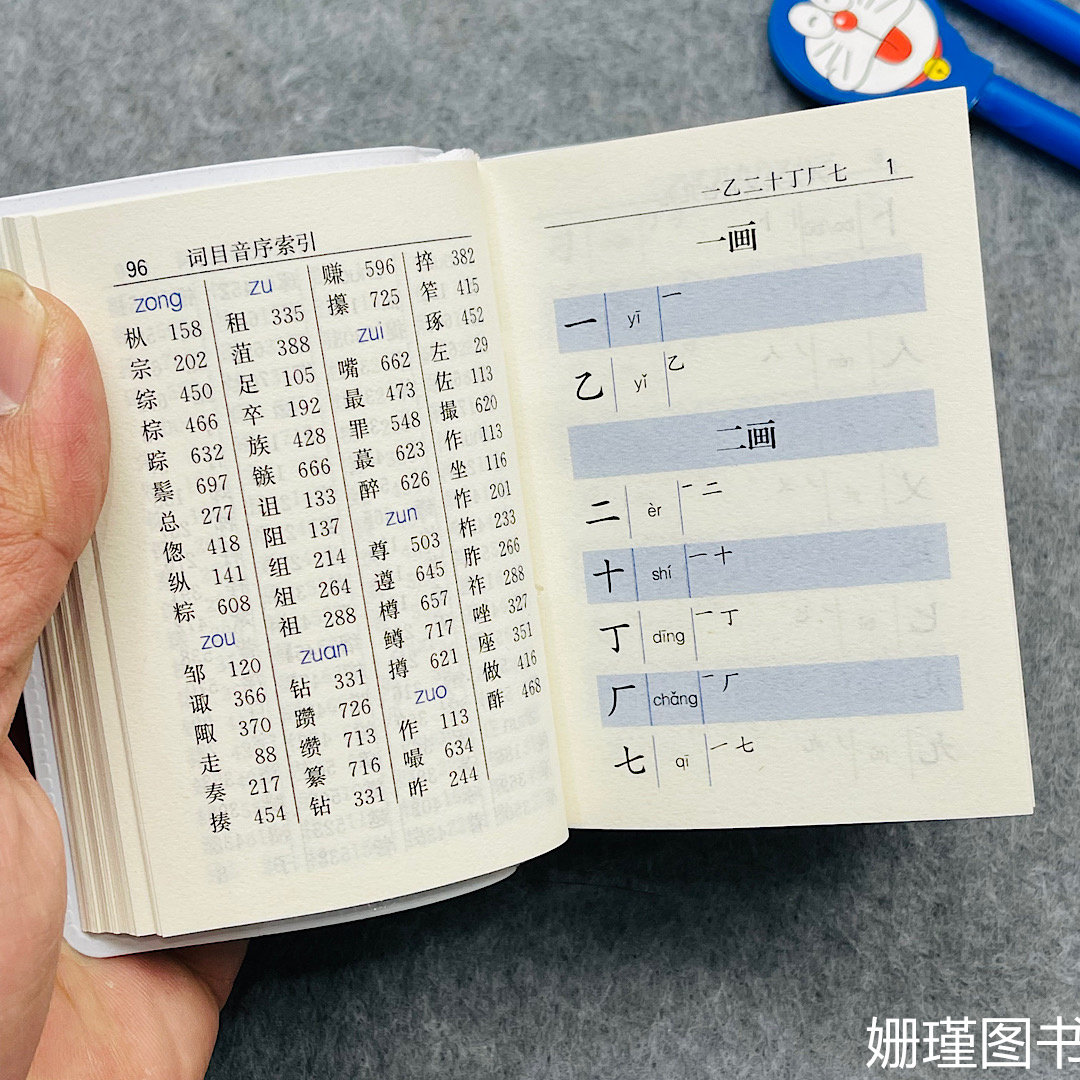 96 词目音序索引
zong
枞 158
宗 202
综 450
棕 466
踪 632
鬃 697
总 277
偬 418
纵 141
粽 608
zou
邹 120
诹 366
陬 370
走 88
奏 217
揍 454
zu
租 335
菹 388
足 105
卒 192
族 428
镞 666
诅 133
阻 137
组 214
俎 264
祖 288
zuan
钻 331
躜 726
缵 713
纂 716
钻 331
赚 596
攥 725
zui
嘴 662
最 473
罪 548
蕞 623
醉 626
zun
尊 503
遵 645
樽 657
鳟 717
撙 621
zuo
作 113
嘬 634
昨 244
捽 382
笮 415
琢 452
左 29
佐 113
撮 620
作 113
坐 116
怍 201
柞 233
胙 266
祚 288
唑 327
座 351
做 416
酢 468
一乙二十丁厂七 1
一画
一 yī 一
乙 yǐ 乙
二画
二 èr 一 二
十 shí 一 十
丁 dīng 一 丁
厂 chǎng 一 厂
七 qī 一 七
姗瑾图书